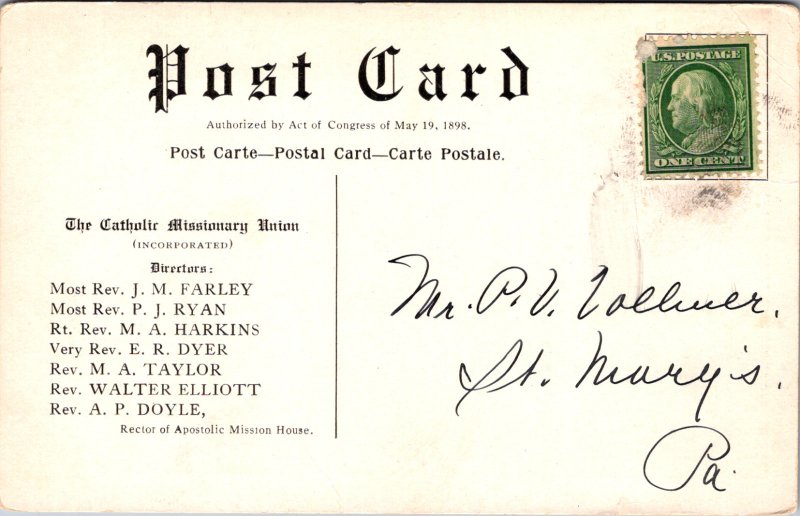 Post Card
Authorized by Act of Congress of May 19, 1898.
Post Carte—Postal Card—Carte Postale.
U.S. POSTAGE
ONE CENT
The Catholic Missionary Union
(INCORPORATED)
Directors:
Most Rev. J. M. FARLEY
Most Rev. P. J. RYAN
Rt. Rev. M. A. HARKINS
Very Rev. E. R. DYER
Rev. M. A. TAYLOR
Rev. WALTER ELLIOTT
Rev. A. P. DOYLE,
Rector of Apostolic Mission House.
Mr. P. V. Vollmer.
St. Mary's.
Pa.